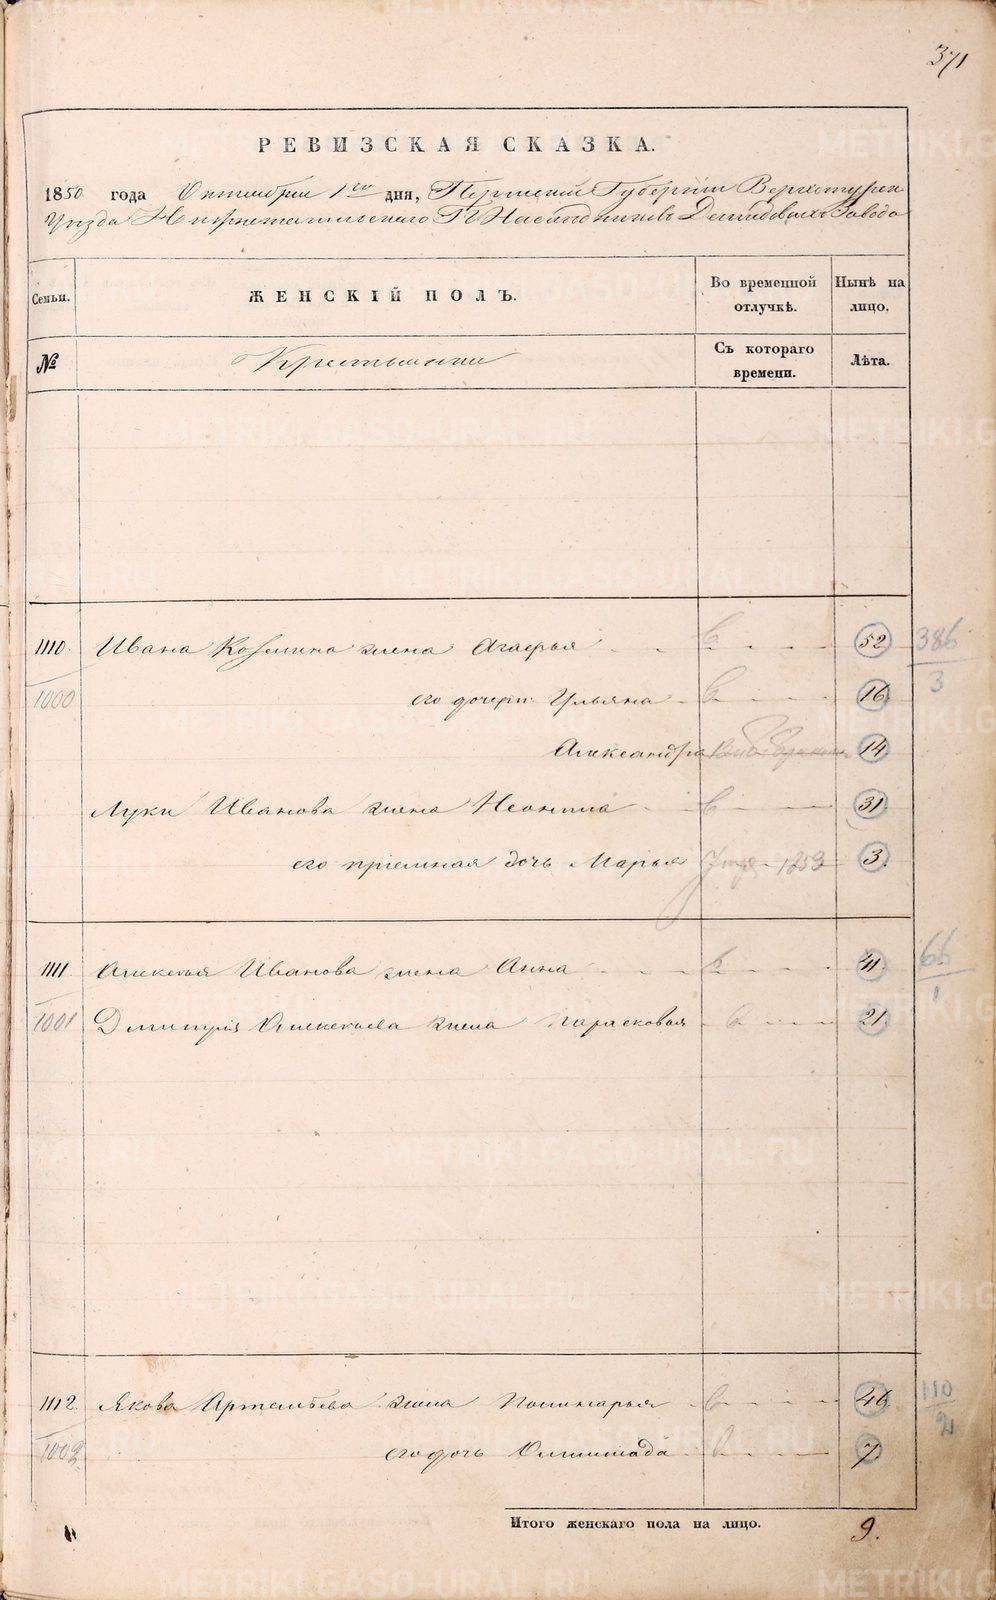 371
РЕВИЗСКАЯ СКАЗКА.
1850 года Октября 1го дня, Пермской Губернии Верхотурск
Уезда Нижнетагильского Гг Наследниковъ Демидовыхъ Завода
Семьи. ЖЕНСКІЙ ПОЛЪ. Во временной отлучкѣ. Нынѣ на лицо.
№ Крестьянки Съ котораго времени. Лѣта.
1110. Ивана Козмина жена Агафья 52 386
1000 его дочери: Ульяна 16 3
Александра 14
Луки Иванова жена Неонила 31
его пріемная дочь Марья 1853 3.
1111. Алексея Иванова жена Анна 41 66
1001 Дмитрія Алексеева жена Парасковья 21. 1
1112. Якова Артемьева жена 46 110
1002 его дочь Олимпіада 7 2
Итого женскаго пола на лицо. 9.
METRIKI.GASO-URAL.RU